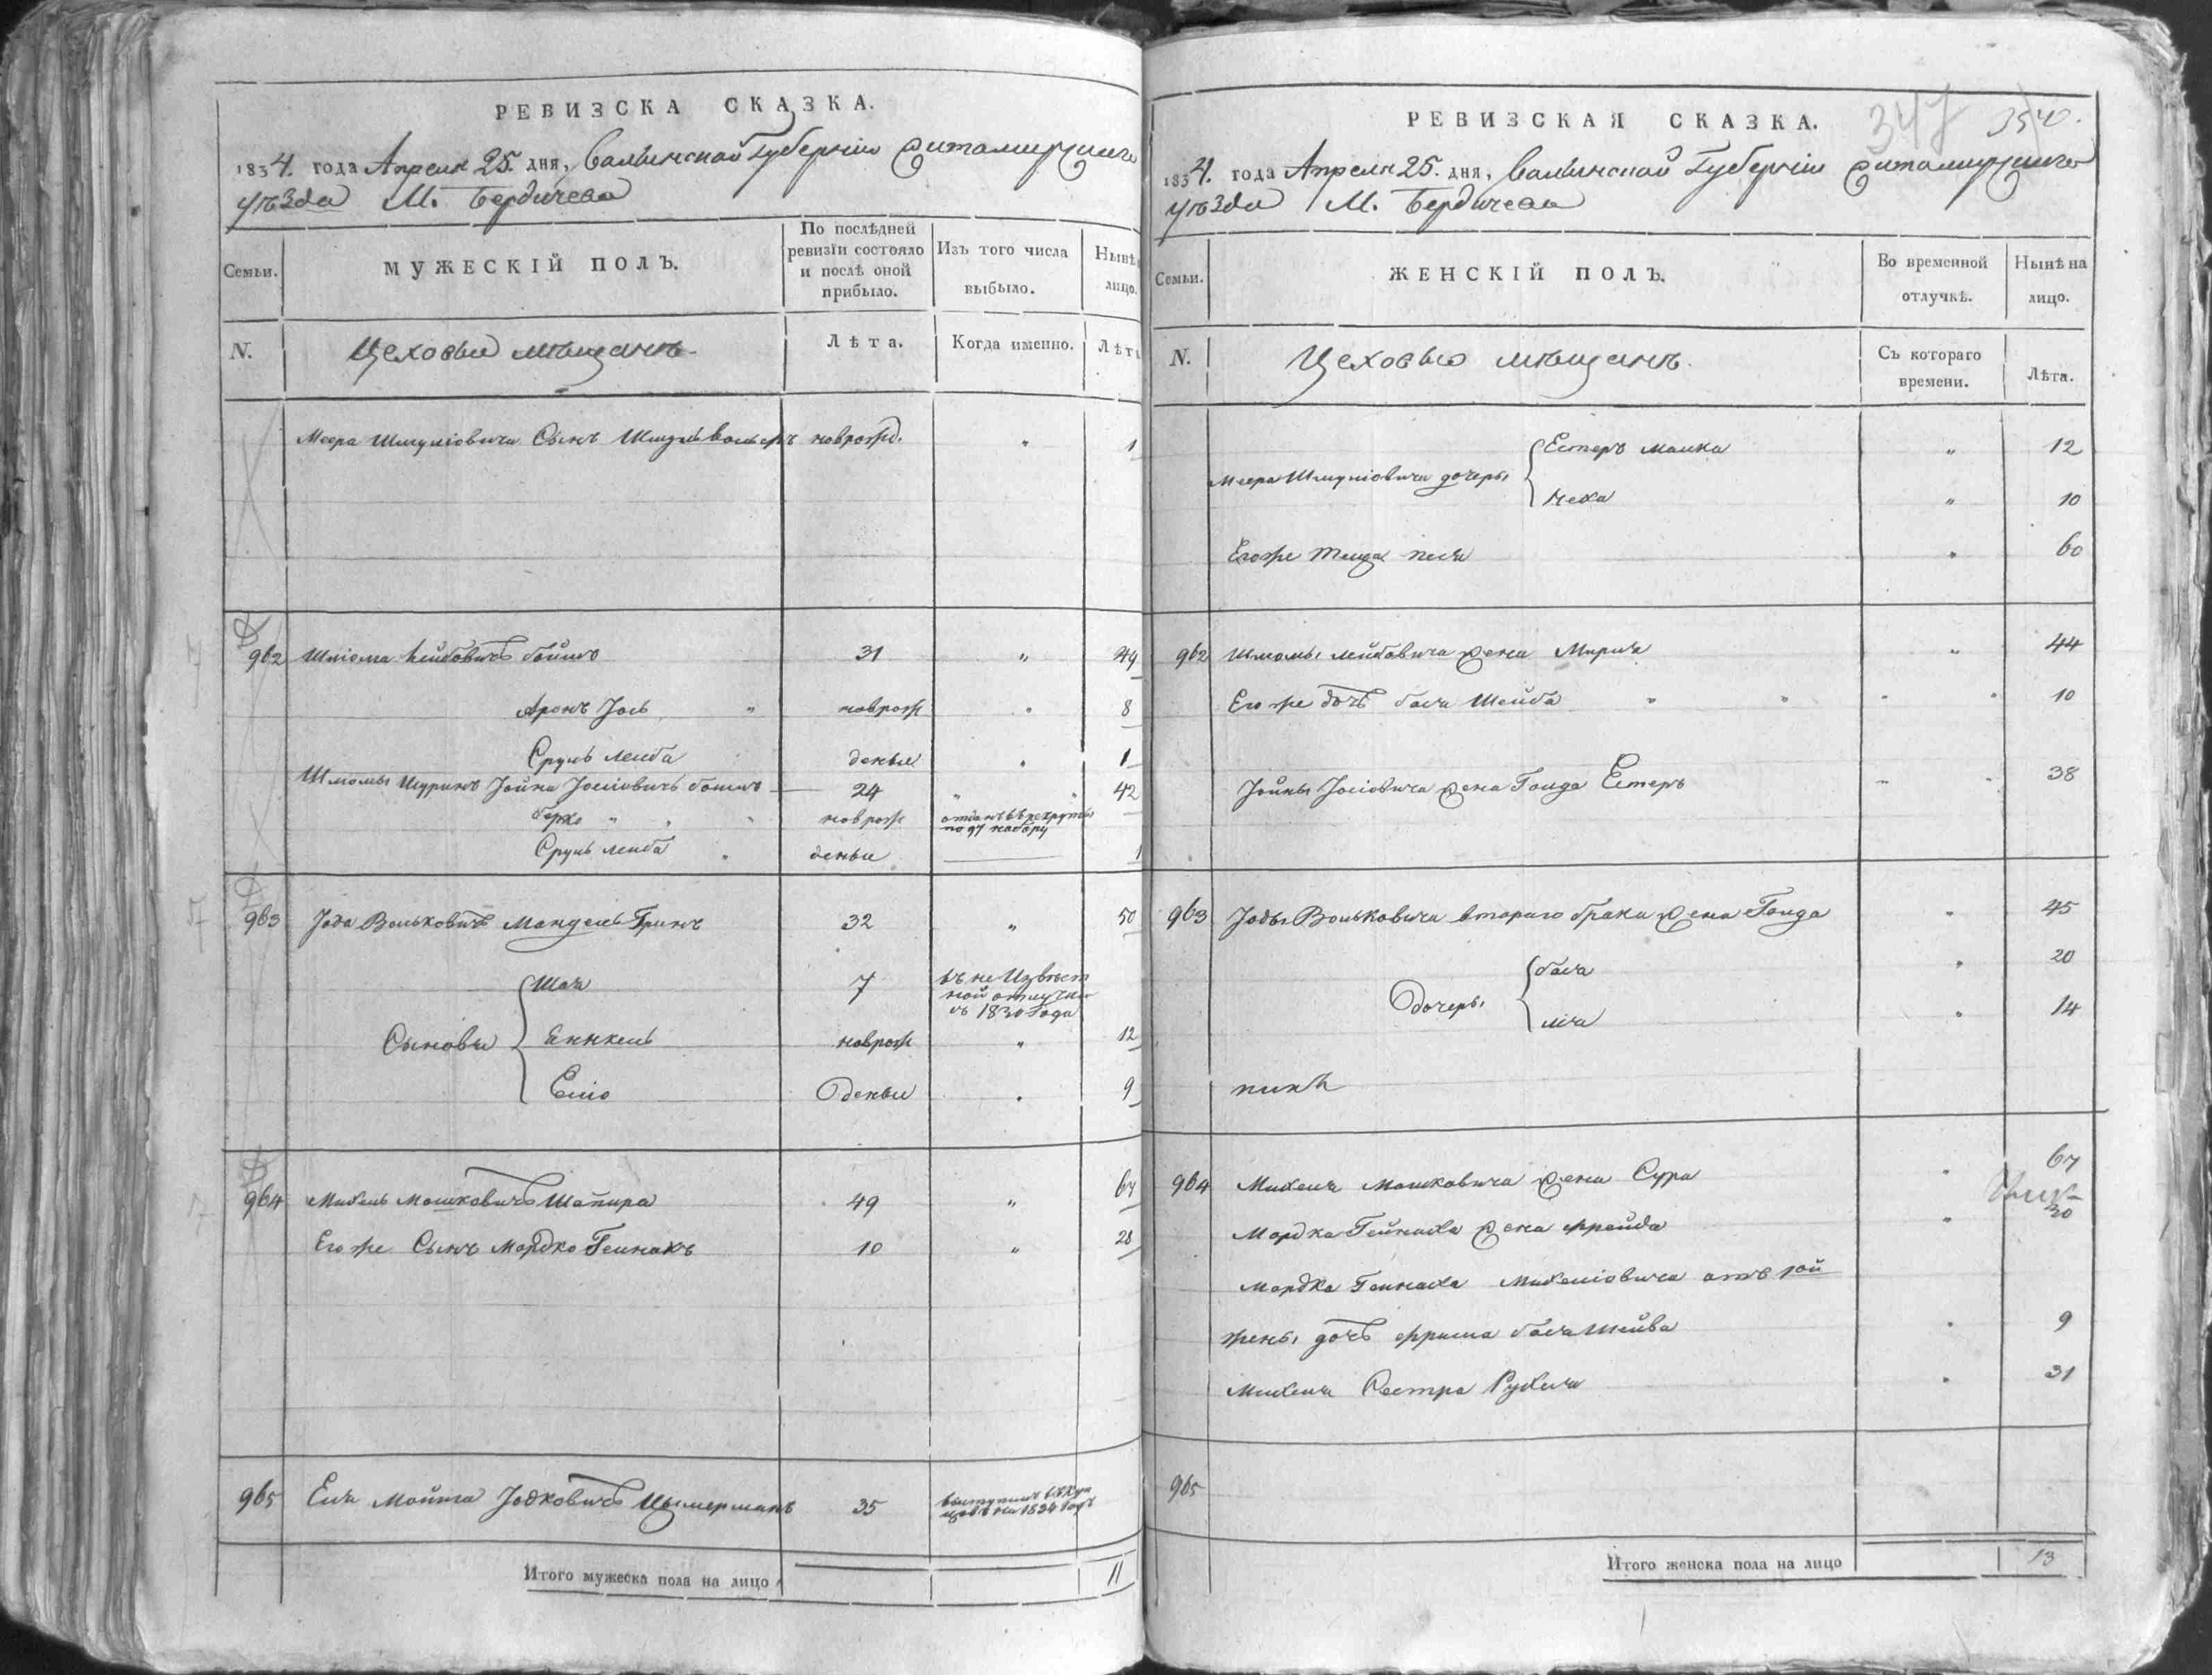 РЕВИЗСКА СКАЗКА.
1834. года Апреля 25. дня, Волынской Губерніи Житомирскаго
уѣзда М. Бердичева
Семьи.
МУЖЕСКІЙ ПОЛЪ.
По послѣдней
ревизіи состояло
и послѣ оной
прибыло.
Изъ того числа
выбыло.
Нынѣ
лицо.
N.
Цеховые мѣщане
Лѣта.
Когда именно.
Лѣт
Меера Шмуліовича Сынъ новрожд. " 1
962 Шліома Лейбовичъ 31 " 49
Аронъ Іось " новрож " 8
Сруль Лейба деньи " 1
Шліомы Шуринъ Іойна Іосіовичъ 24 " " 42
Берко " " " новрож отданъ въ рекруты
по 97 набору
Сруль Лейба " деньи 1
963 Іода Вольковичъ Мандель Гринъ 32 " 50
Сыновья
Шая 7 въ не Извѣст
ной отлучки
съ 1830 Года
Янкель новрож " 12
Еліо деньи " 9
964 Михель Мошковичъ Шапира 49 " 67
Его же Сынъ Мордко Гейнахъ 10 " 28
965 Еля Мойта Іодковичъ Цымерманъ 35
на 1834 Годъ
Итого мужеска пола на лицо 11
РЕВИЗСКАЯ СКАЗКА.
347 340.
1834. года Апреля 25. дня, Волынской Губерніи Житомирскаго
уѣзда М. Бердичева
Семьи.
ЖЕНСКІЙ ПОЛЪ.
Во временной
отлучкѣ.
Нынѣ на
лицо.
N.
Цеховые мѣщане.
Съ котораго
времени.
Лѣта.
Меера Шмуліовича дочеры
Естеръ Малка " 12
Чеха " 10
Его же Теща Песя " 60
962 Шліомы Лейбовича жена Мирля " 44
Его же дочь Бася Шейва " " " " 10
Іойны Іосіовича жена Голда Естеръ " " 38
963 Іоды Вольковича втораго брака жена Голда " 45
Дочеры
Бася " 20
Лія " 14
964 Михеля Мошковича жена Сура " 67
Мордка Гейнаха жена Фрейда " 30
Мордка Гейнаха Михеліовича отъ 1ой
жены дочь Фрима Бася Шейва " 9
Михеля Сестра Рухля " 31
965
Итого женска пола на лицо 13